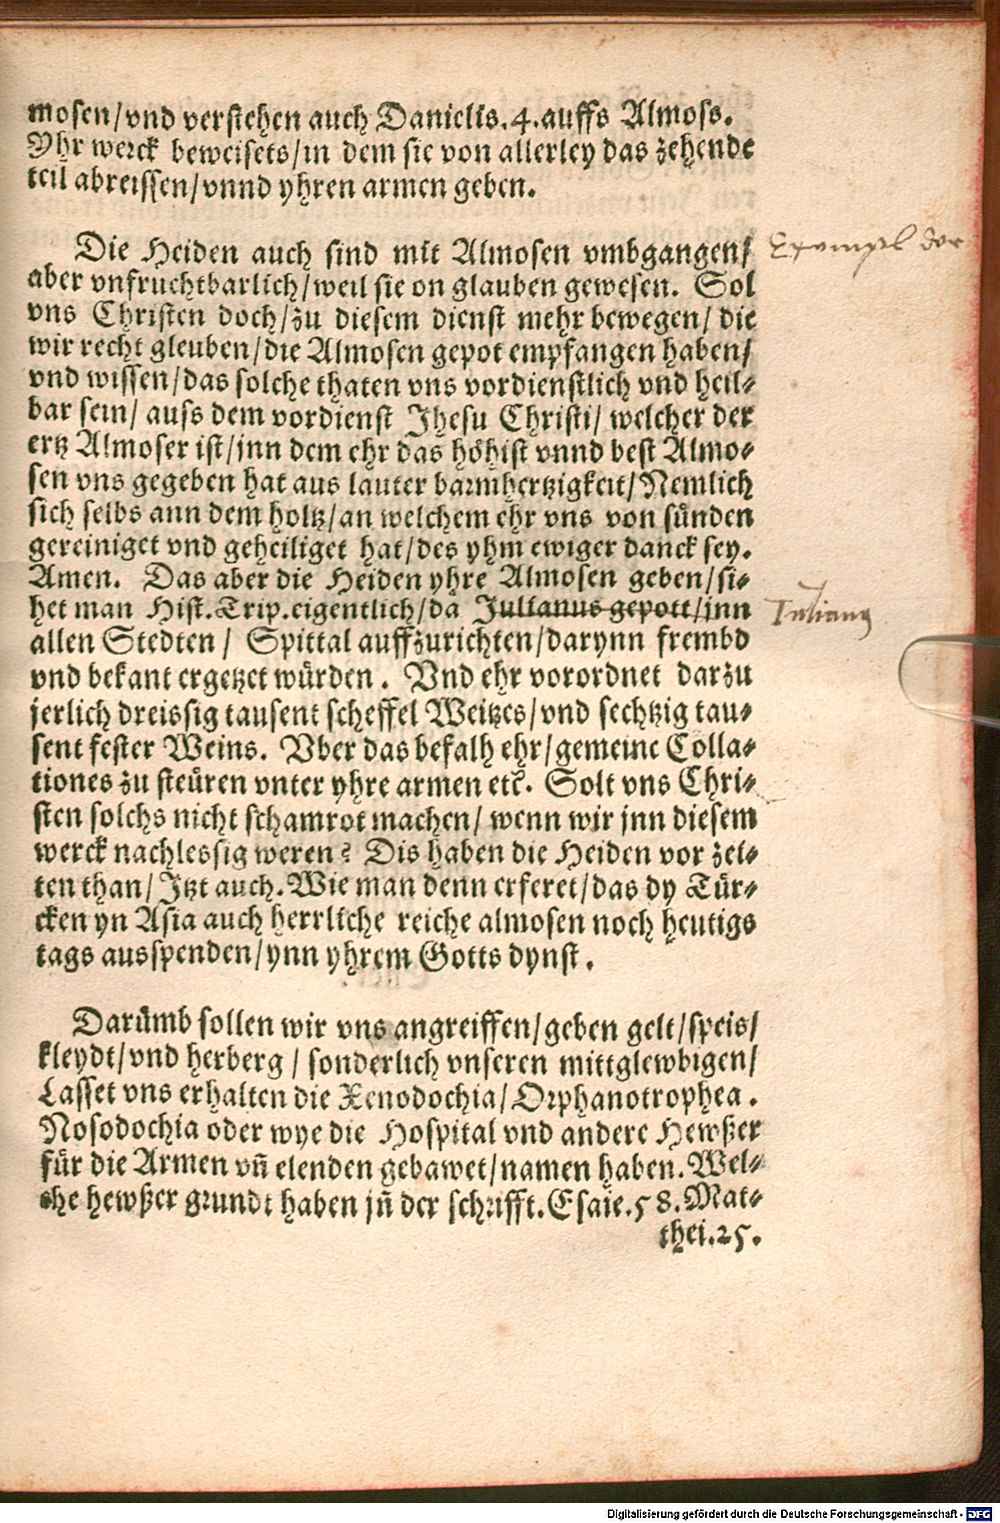 mosen/vnd verstehen auch Danielis.4.auffs Almoss.
Yhr werck beweisets/in dem sie von allerley das zehende
teil abreissen/vnnd yhren armen geben.
Die Heiden auch sind mit Almosen vmbgangen/
Exempel der
aber vnfruchtbarlich/weil sie on glauben gewesen. Sol
vns Christen doch/zu diesem dienst mehr bewegen/die
wir recht gleuben/die Almosen gepot empfangen haben/
vnd wissen/das solche thaten vns vordienstlich vnd heil-
bar sein/ auss dem vordienst Jhesu Christi/ welcher der
ertz Almoser ist/inn dem ehr das höhist vnnd best Almo-
sen vns gegeben hat aus lauter barmhertzigkeit/Nemlich
sich selbs ann dem holtz/an welchem ehr vns von sünden
gereiniget vnd geheiliget hat/des yhm ewiger danck sey.
Amen. Das aber die Heiden yhre Almosen geben/si-
het man Hist.Trip.eigentlich/da Julianus gepott/jnn
Julianus
allen Stedten/ Spittal auffzurichten/darynn frembd
vnd bekant ergetzet würden. Vnd ehr vorordnet darzu
jerlich dreissig tausent scheffel Weitzes/vnd sechtzig tau-
sent fester Weins. Vber das befalh ehr/gemeine Colla-
tiones zu steüren vnter yhre armen etc̃. Solt vns Chri-
sten solchs nicht schamrot machen/ wenn wir jnn diesem
werck nachlessig weren? Dis haben die Heiden vor zei-
ten than/Jtzt auch.Wie man denn erferet/das dy Tür-
cken yn Asia auch herrliche reiche almosen noch heutigs
tags ausspenden/ynn yhrem Gotts dynst.
Darümb sollen wir vns angreiffen/geben gelt/speis/
kleydt/vnd herberg/ sonderlich vnseren mittglewbigen/
Lasset vns erhalten die Xenodochia/Orphanotrophea.
Nosodochia oder wye die Hospital vnd andere Hewßer
für die Armen vñ elenden gebawet/namen haben.Wel-
che hewßer grundt haben jñ der schrifft.Esaie.58.Mat-
thei.25.
Digitalisierung gefördert durch die Deutsche Forschungsgemeinschaft - DFG